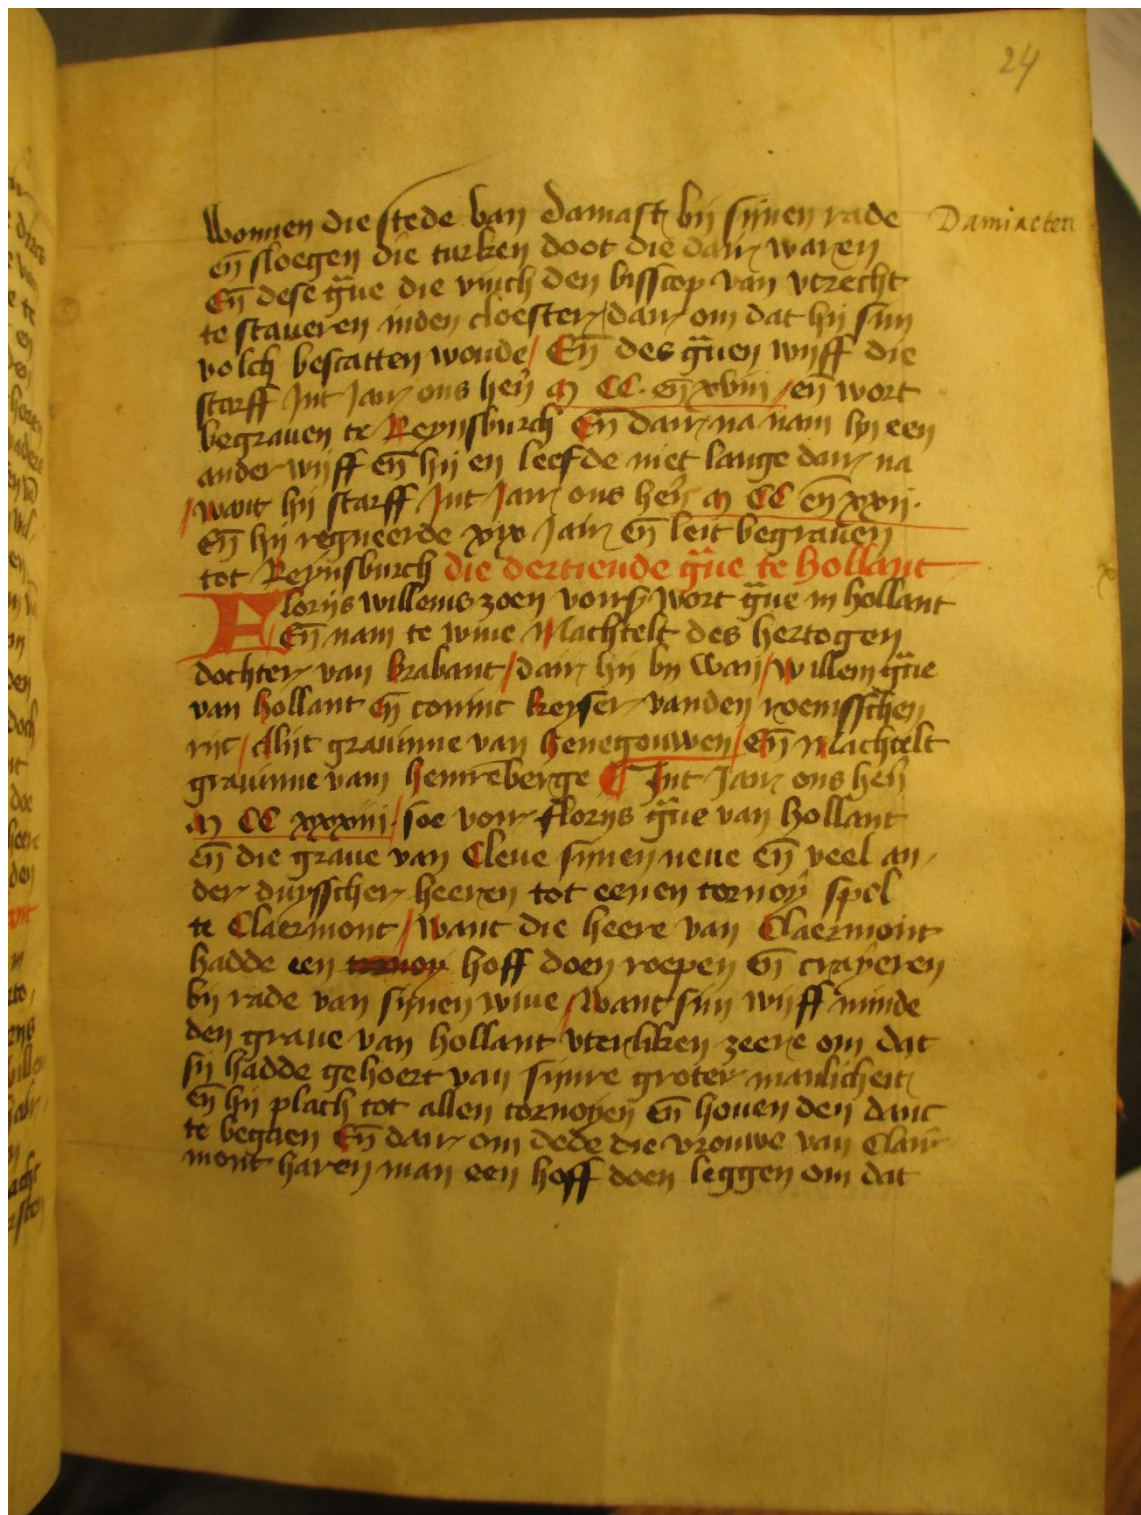 24
wonnen die stede van damast bij sijnen rade
Damiacten
en̄ sloegen die turken doot die daer waren
En̄ dese gͣue die vinch den bisscop van vtrecht
te staueren inden cloester daer om dat hij sijn
volch bescatten woude / En̄ des gͣuen wijff die
starff Int Jaer ons hern̄ M CC. en̄ xviii / en̄ wort
begrauen te Reynsburch En̄ daer na nam hij een
ander wijff en̄ hij en leefde niet lange daer na
/ want hij starff Int Jaer ons hern̄ M CC en̄ xxii.
En̄ hij regneerde xix Jair en̄ leit begrauen
tot Reynsburch die dertiende gͣue te hollant
Florijs willems zoen vors wort gͣue in hollant
En̄ nam te wiue Machtelt des hertogen
dochter van brabant / dair hij bij wan / willem gͣue
van hollant en̄ coninc keyser vanden roemsschen
rijc / Alijt grauinne van henegouwen / En̄ Machtelt
grauinne vam hennēberge Int Jaer ons hern̄
M CC xxxiiii / soe voer florijs gͣue van hollant
en̄ die graue van Cleue sijnen neue en̄ veel an
der duysscher heeren tot eenen tornoy spel
te Claermont / want die heere van Claermont
hadde een tornoy hoff doen roepen en̄ crayeren
bij rade van sijnen wiue / want sijn wijff minde
den graue van hollant vterliken zeere om dat
sij hadde gehoert van sijnre groter manlicheit
en̄ hij plach tot allen tornoyen en̄ houen den danc
te begaen En̄ daer om dede die vrouwe van Claer
mont haren man een hoff doen leggen om dat